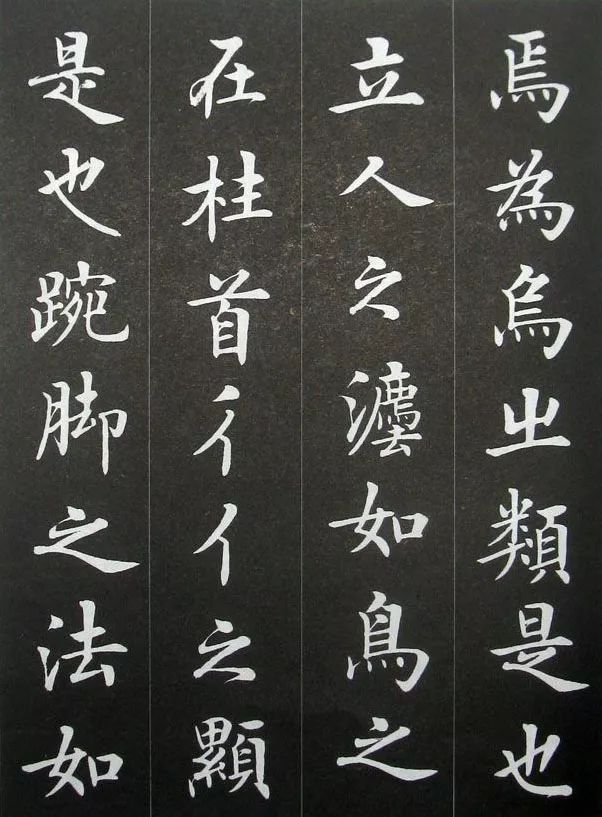 焉為烏㞢類是也
立人之灋如鳥之
在柱首彳亻之
是也踠脚之法如